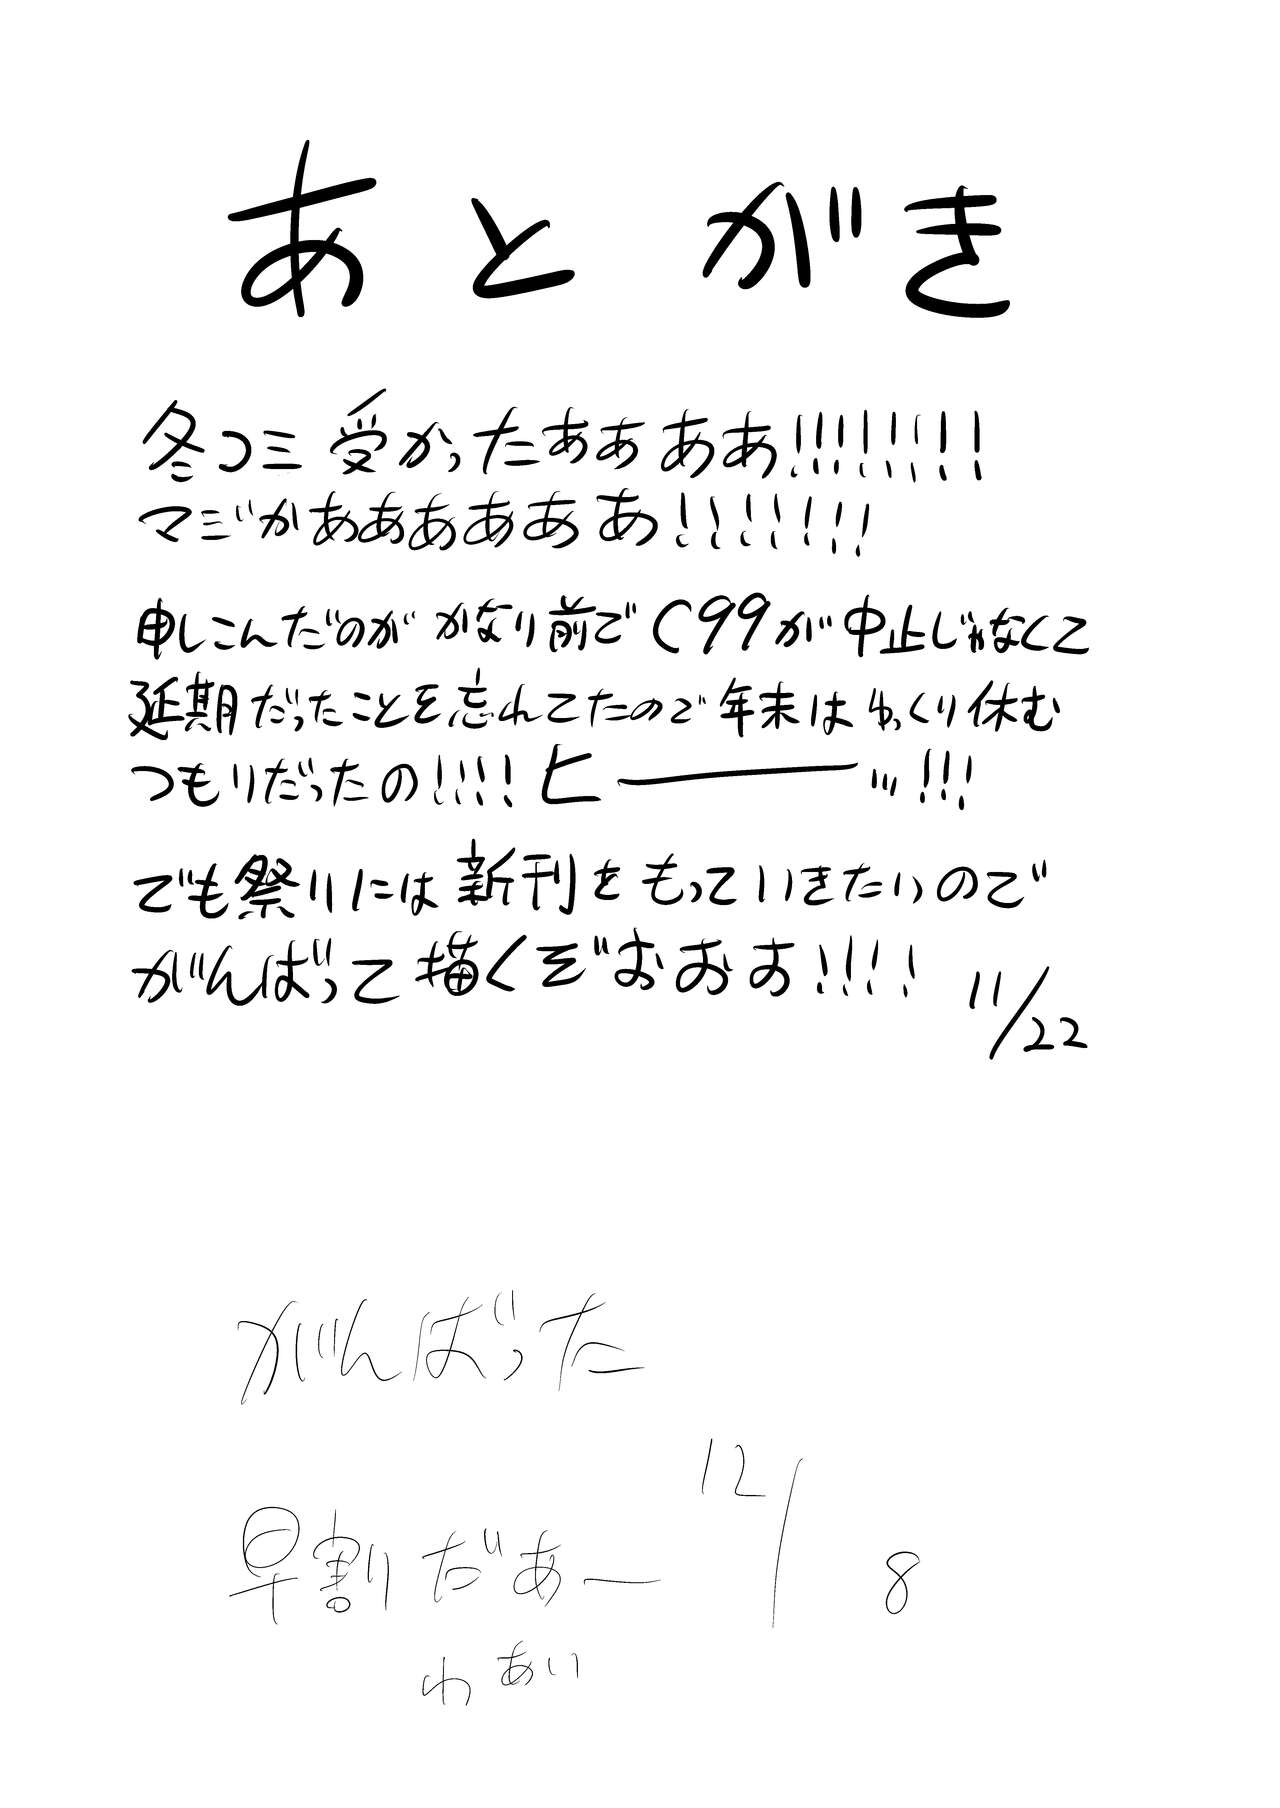 あとがき
冬コミ受かったぁぁああ!!!!!!!!
マジかあああああああ!!!!!!!
申しこんだのがかなり前でC99が中止じゃなくて
延期だったことを忘れてたので年末はゆっくり休む
つもりだったの!!!!ヒーーッ!!!
でも祭りには新刊をもっていきたいので
がんばって描くぞおおお!!!!
11/22
がんばった
12/8
早割だあー
わあい